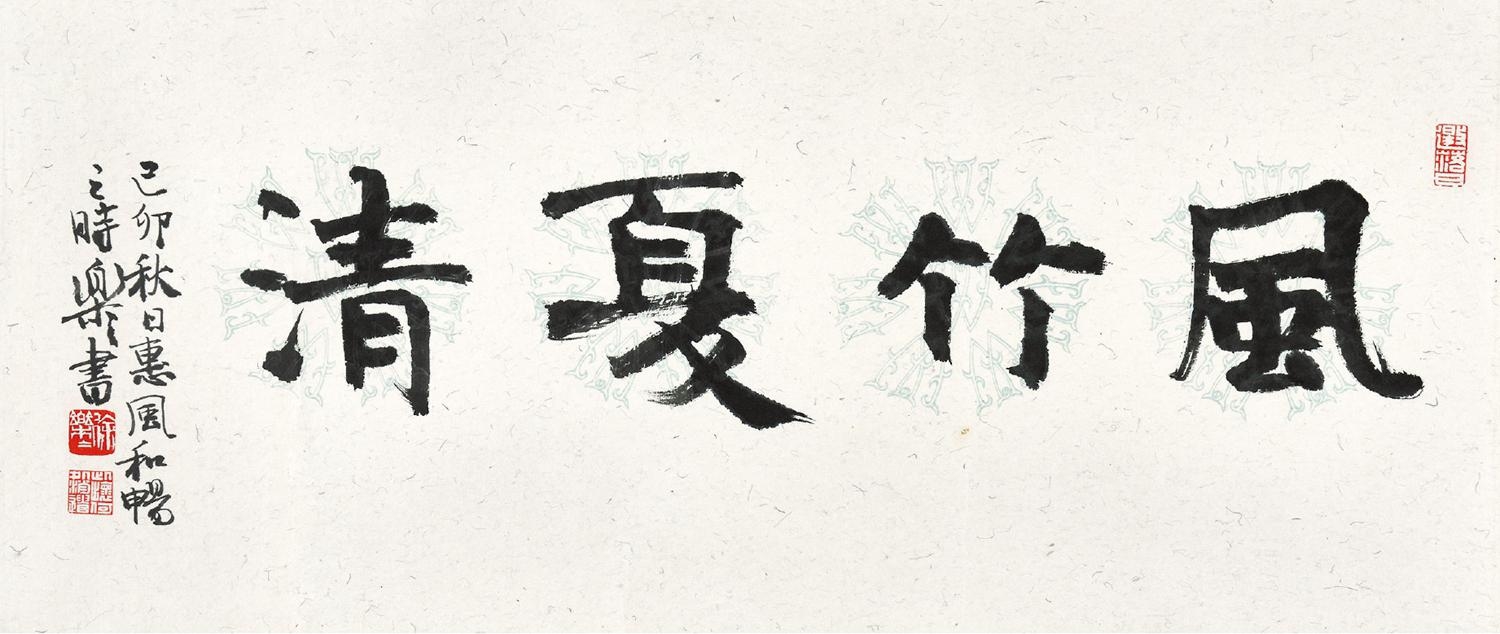 風竹夏清
己卯秋日惠風和暢
之時樂樂書
徐樂樂